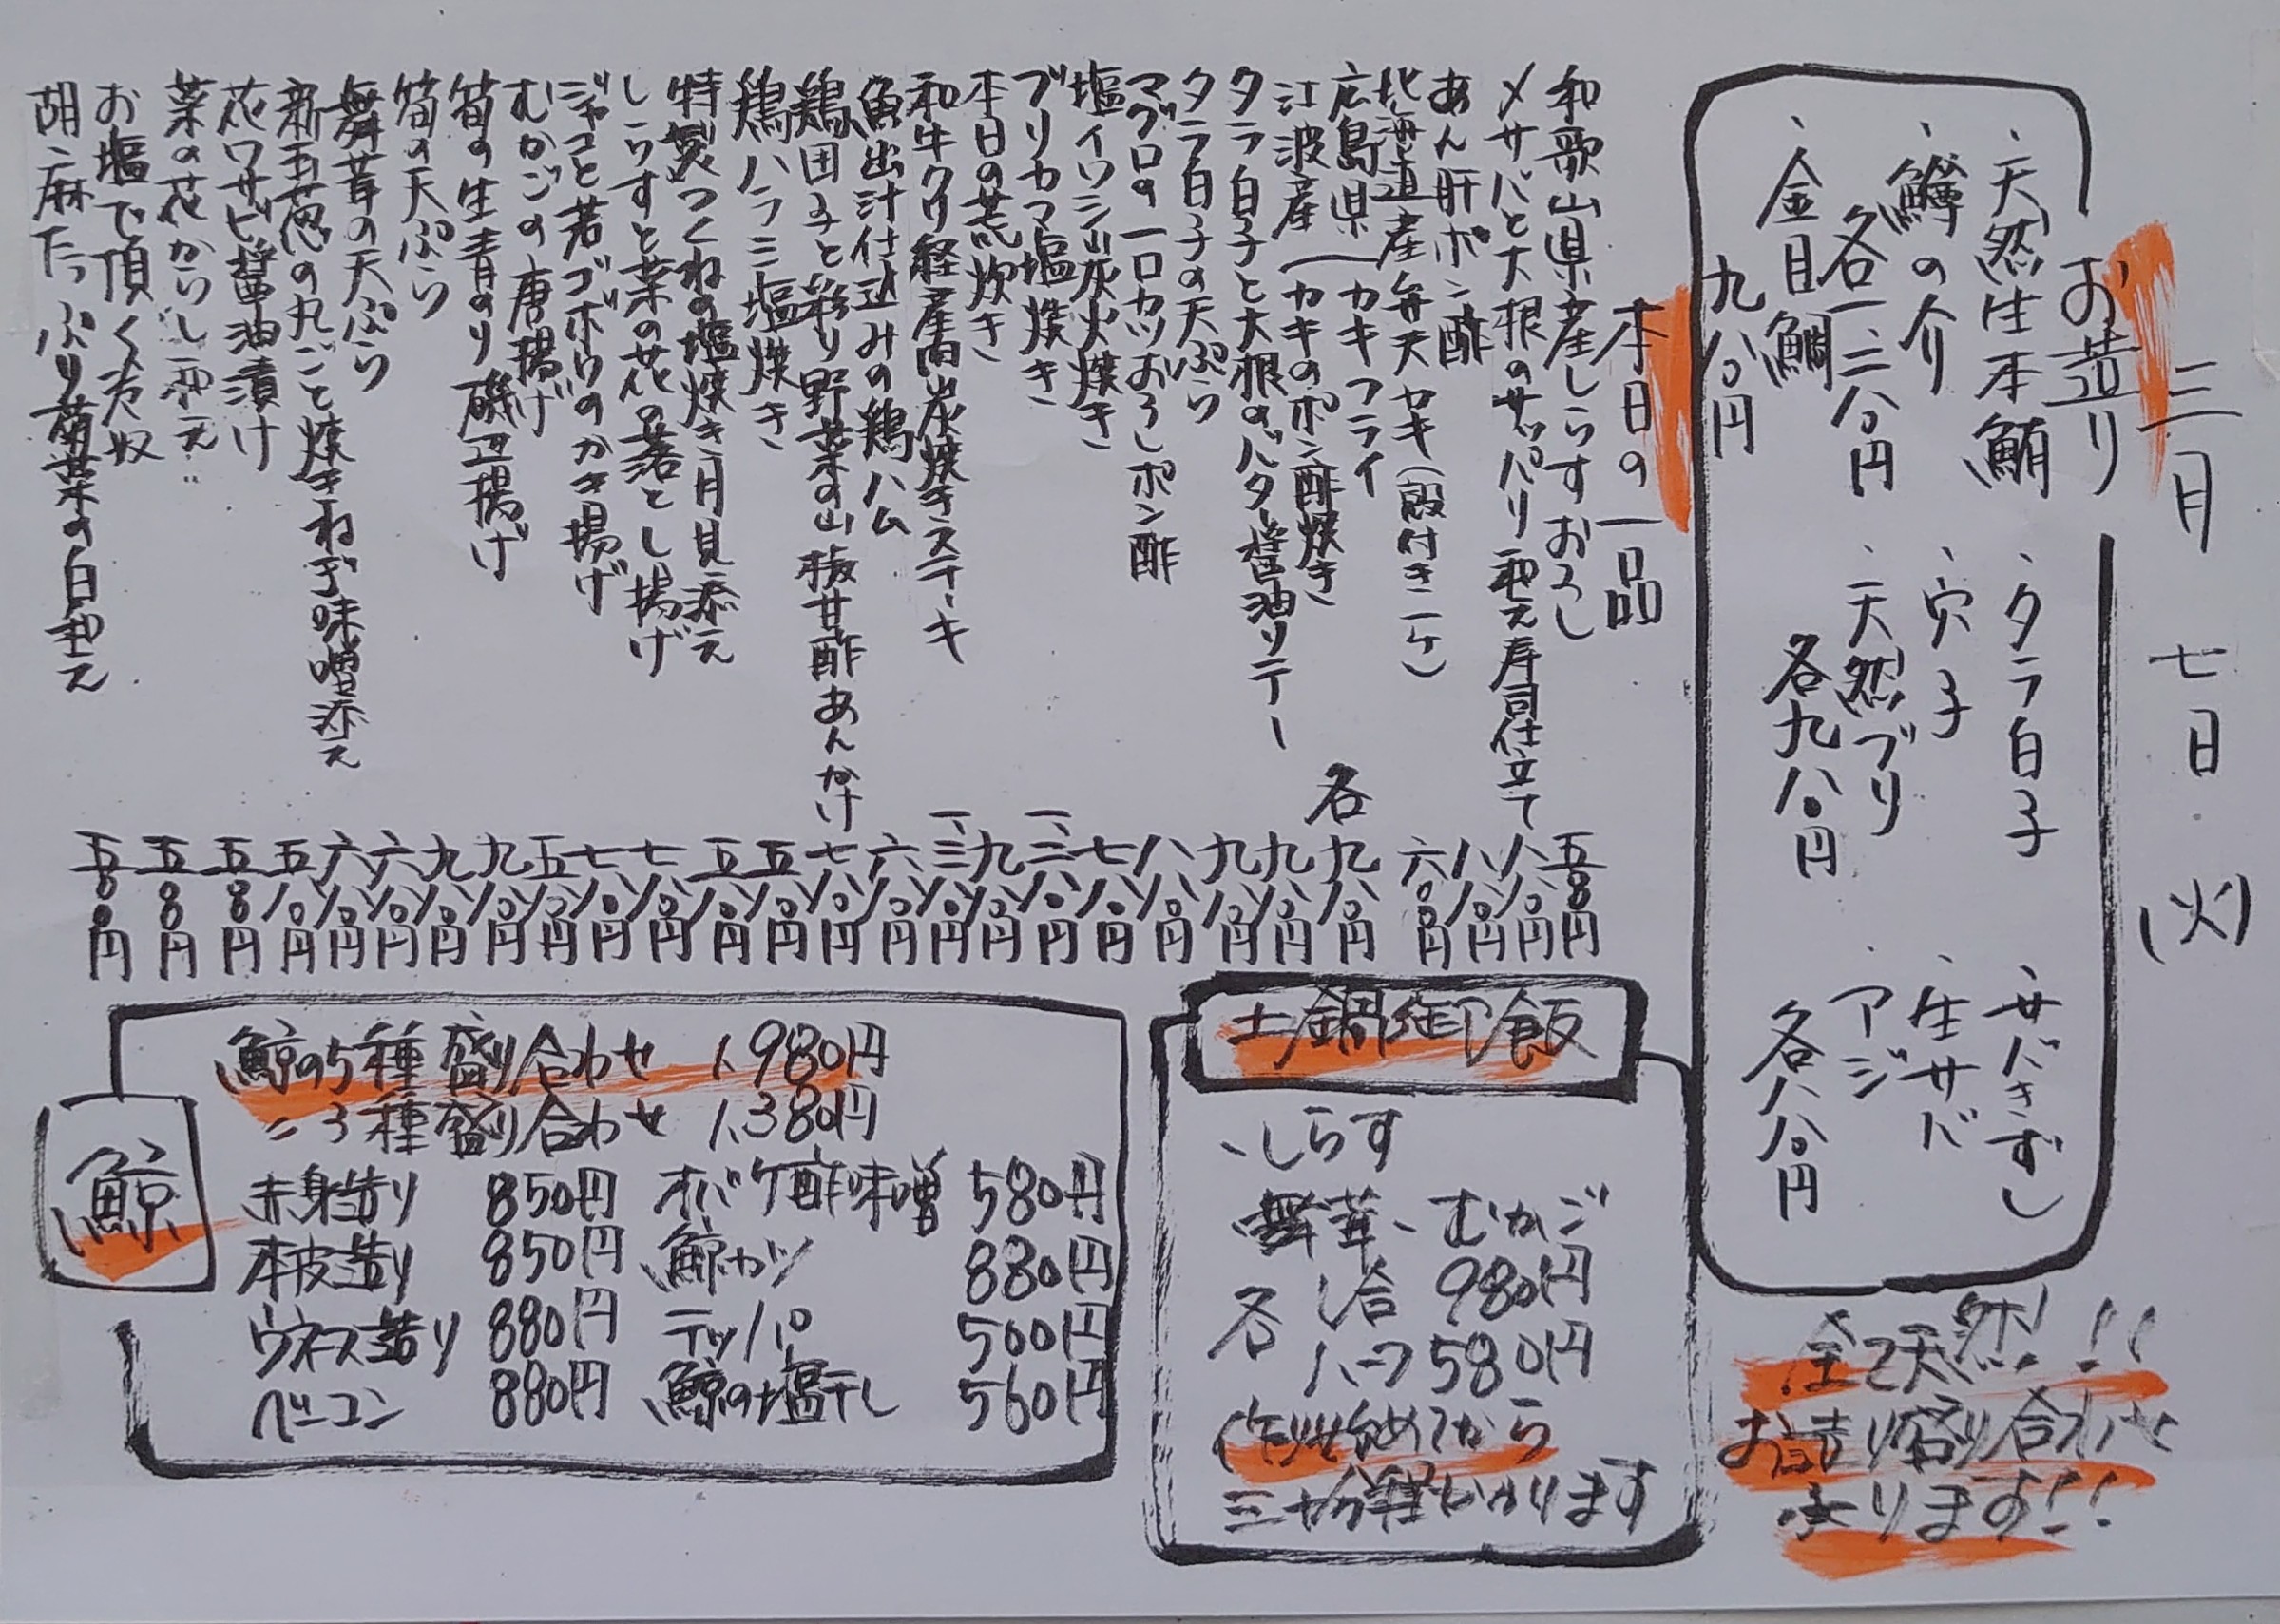 三月七日(火)
お造り
、天然生本鮪
、鱒の介
各一、二八〇円
、金目鯛
九八〇円
、タラ白子
、穴子
、天然ブリ
各九八〇円
、サバきずし
、生サバ
、アジ
各八八〇円
全て天然!!
お造り盛り合わせ
承ります!!
本日の一品
和歌山県産しらすおろし 五八〇円
〆サバと大根のサッパリ和え寿司仕立て 八八〇円
あん肝ポン酢 八八〇円
北海道産弁天カキ(殻付き一ケ) 六〇〇円
広島県 カキフライ
江波産 カキのポン酢焼き
各九八〇円
タラ白子と大根のバター醤油ソテー 九八〇円
タラ白子の天ぷら 九八〇円
マグロの一口カツおろしポン酢 八八〇円
塩イワシ炭火焼き 七八〇円
ブリカマ塩焼き 一、二八〇円
本日の荒炊き 九八〇円
和牛クリ経産肉炭焼きステーキ 一、三八〇円
魚出汁仕込みの鶏ハム 六八〇円
鶏団子と彩り野菜の山椒甘酢あんかけ 七八〇円
鶏ハラミ塩焼き 五八〇円
特製つくねの塩焼き月見添え 五八〇円
しらすと菜の花の落とし揚げ 七八〇円
ジャコと若ゴボウのかき揚げ 七八〇円
むかごの唐揚げ 五八〇円
筍の生青のり磯辺揚げ 九八〇円
筍の天ぷら 九八〇円
舞茸の天ぷら 六八〇円
新玉葱の丸ごと焼きねぎ味噌添え 六八〇円
花ワサビ醤油漬け 五八〇円
菜の花からし和え 五八〇円
お塩で頂く冷奴 五八〇円
胡麻たっぷり菊菜の白和え 五八〇円
土鍋御飯
、しらす
舞茸、むかご
各 一合 980円
ハーフ 580円
作り始めてから
三十分程かかります
鯨
鯨の5種盛り合わせ 1,980円
〃3種盛り合わせ 1,380円
赤身造り 850円 オバケ酢味噌 580円
本皮造り 850円 鯨カツ 880円
ウネス造り 880円 テッパ 500円
ベーコン 880円 鯨の塩干し 560円